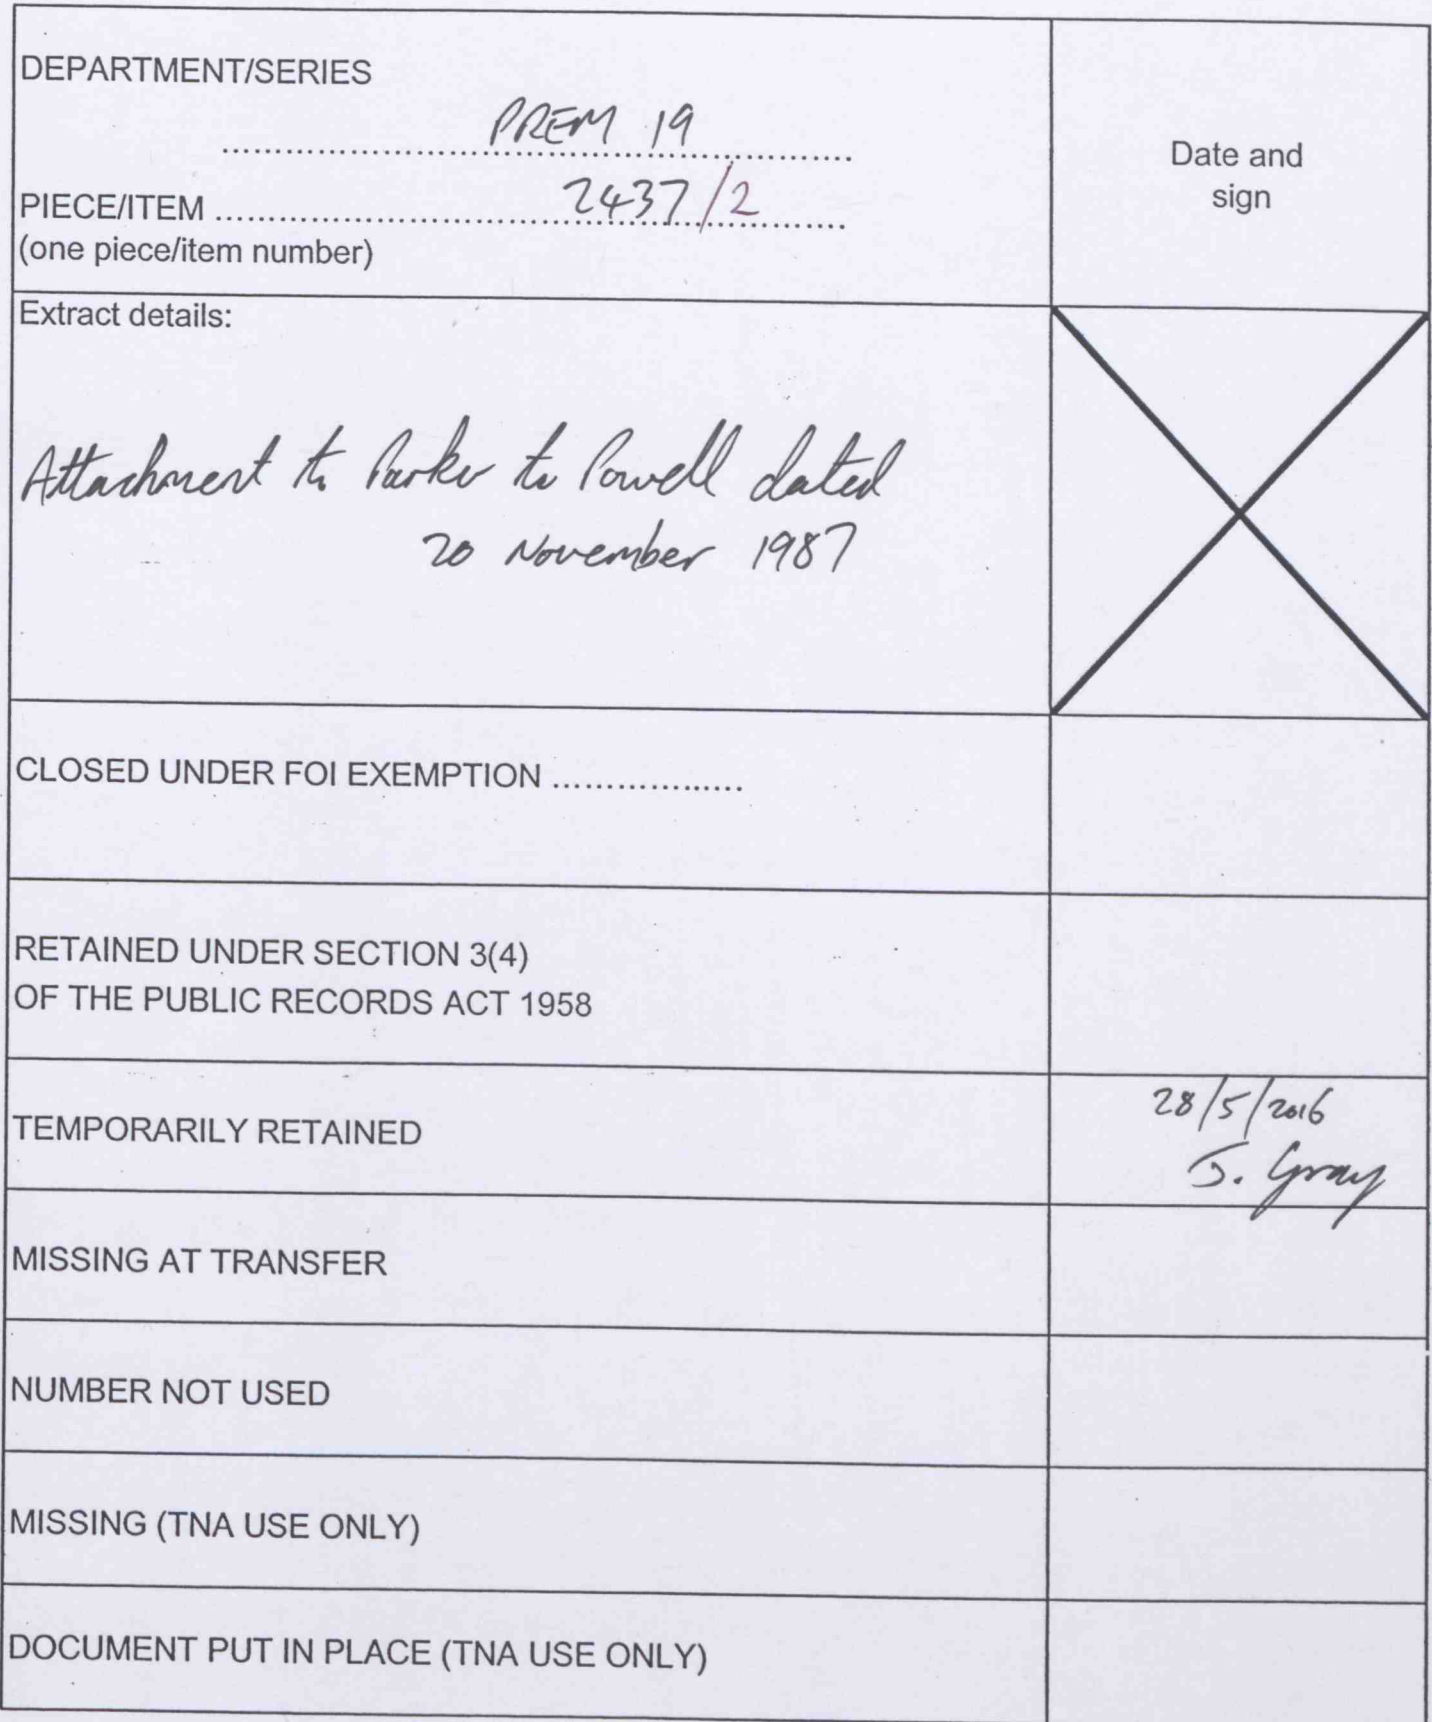 DEPARTMENT/SERIES
PREM 19
Date and
sign
PIECE/ITEM ................ 2437/2
(one piece/item number)
Extract details:
Attachment to Parker to Powell dated
20 November 1987
CLOSED UNDER FOI EXEMPTION ..................
RETAINED UNDER SECTION 3(4)
OF THE PUBLIC RECORDS ACT 1958
TEMPORARILY RETAINED
28/5/2016
J. Gray
MISSING AT TRANSFER
NUMBER NOT USED
MISSING (TNA USE ONLY)
DOCUMENT PUT IN PLACE (TNA USE ONLY)